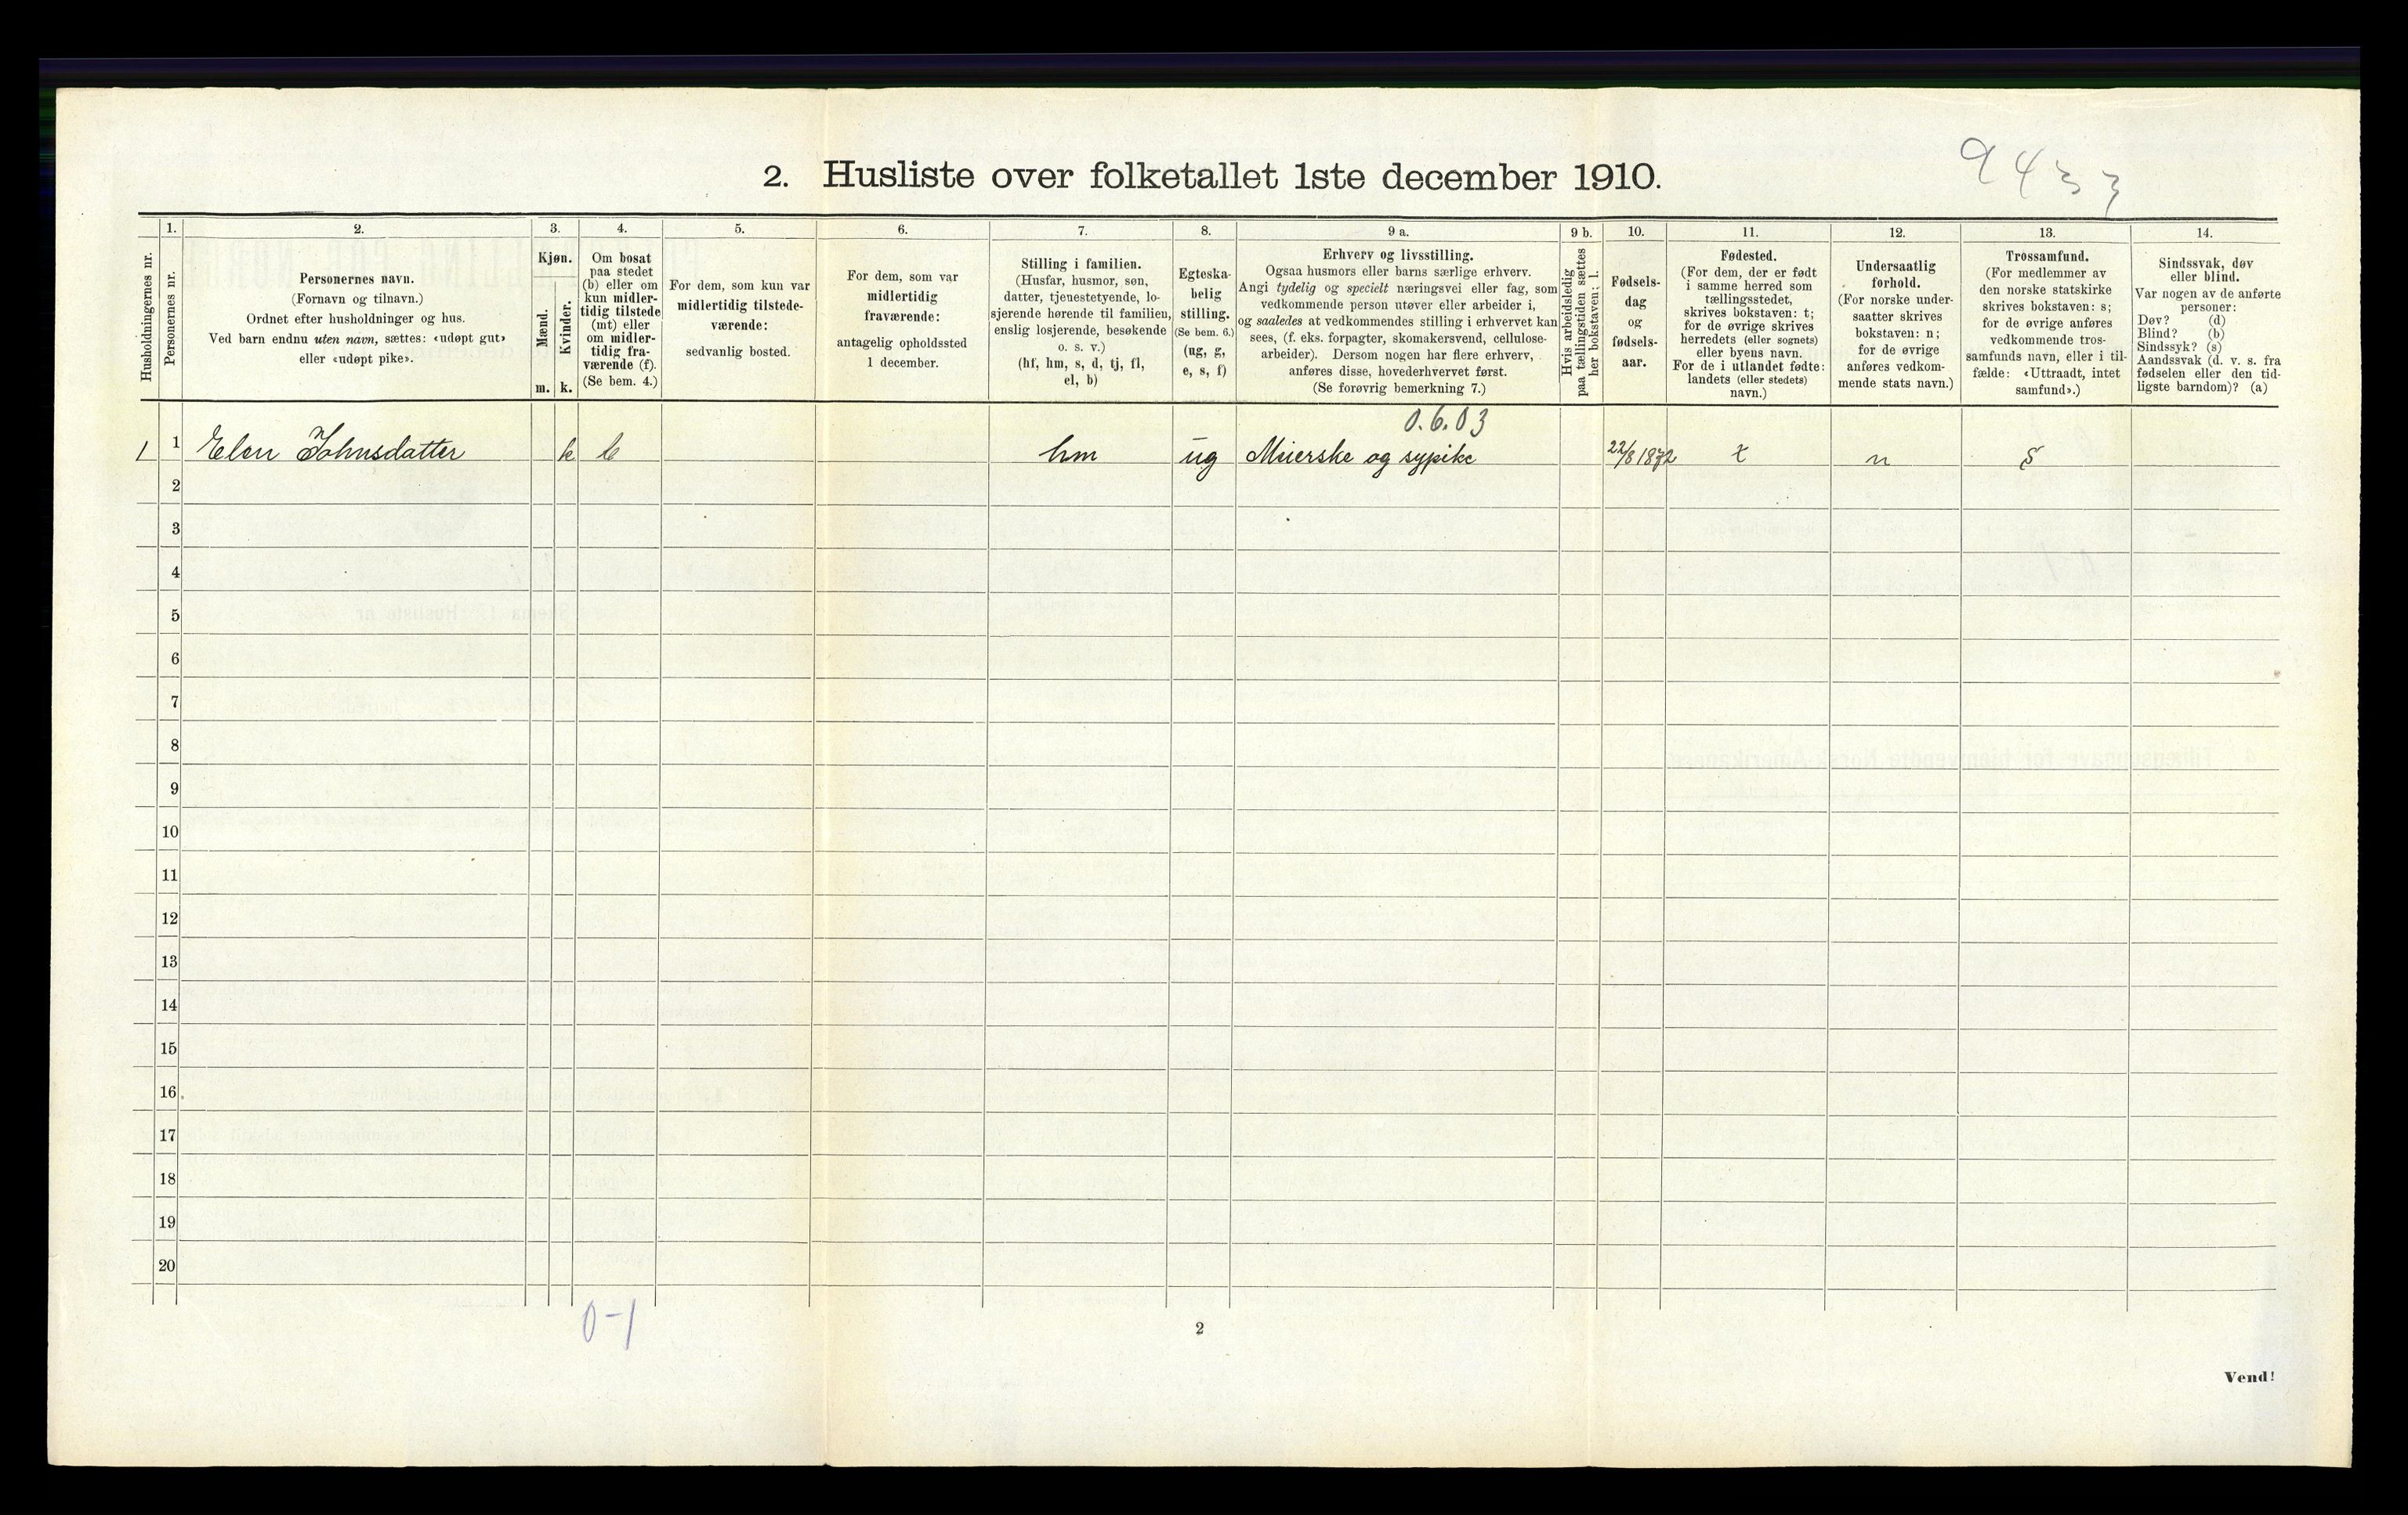 9433
2. Husliste over folketallet 1ste december 1910.
Husholdningernes nr.
1.
Personernes nr.
2.
Personernes navn.
(Fornavn og tilnavn.)
Ordnet efter husholdninger og hus.
Ved barn endnu uten navn, sættes: «udøpt gut»
eller «udøpt pike».
3.
Kjøn.
Mænd.
m.
Kvinder.
k.
4.
Om bosat
paa stedet
(b) eller om
kun midler-
tidig tilstede
(mt) eller
om midler-
tidig fra-
værende (f).
(Se bem. 4.)
5.
For dem, som kun var
midlertidig tilstede-
værende:
sedvanlig bosted.
6.
For dem, som var
midlertidig
fraværende:
antagelig opholdssted
1 december.
7.
Stilling i familien.
(Husfar, husmor, søn,
datter, tjenestetyende, lo-
sjerende hørende til familien,
enslig losjerende, besøkende
o. s. v.)
(hf, hm, s, d, tj, fl,
el, b)
8.
Egteska-
belig
stilling.
(Se bem. 6.)
(ug, g,
e, s, f)
9 a.
Erhverv og livsstilling.
Ogsaa husmors eller barns særlige erhverv.
Angi tydelig og specielt næringsvei eller fag, som
vedkommende person utøver eller arbeider i,
og saaledes at vedkommendes stilling i erhvervet kan
sees, (f. eks. forpagter, skomakersvend, cellulose-
arbeider). Dersom nogen har flere erhverv,
anføres disse, hovederhvervet først.
(Se forøvrig bemerkning 7.)
9 b.
Hvis arbeidsledig
paa tællingstiden sættes
her bokstaven: l.
10.
Fødsels-
dag
og
fødsels-
aar.
11.
Fødested.
(For dem, der er født
i samme herred som
tællingsstedet,
skrives bokstaven: t;
for de øvrige skrives
herredets (eller sognets)
eller byens navn.
For de i utlandet fødte:
landets (eller stedets)
navn.)
12.
Undersaatlig
forhold.
(For norske under-
saatter skrives
bokstaven: n;
for de øvrige
anføres vedkom-
mende stats navn.)
13.
Trossamfund.
(For medlemmer av
den norske statskirke
skrives bokstaven: s;
for de øvrige anføres
vedkommende tros-
samfunds navn, eller i til-
fælde: «Uttraadt, intet
samfund».)
14.
Sindssvak, døv
eller blind.
Var nogen av de anførte
personer:
Døv? (d)
Blind? (b)
Sindssyk? (s)
Aandssvak (d. v. s. fra
fødselen eller den tid-
ligste barndom)? (a)
0.6.03
1 1 Elen Johnsdatter k b hm ug Meierske og sypike 22/8 1872 t n s
2
3
4
5
6
7
8
9
10
11
12
13
14
15
16
17
18
19
20
0-1
2
Vend!